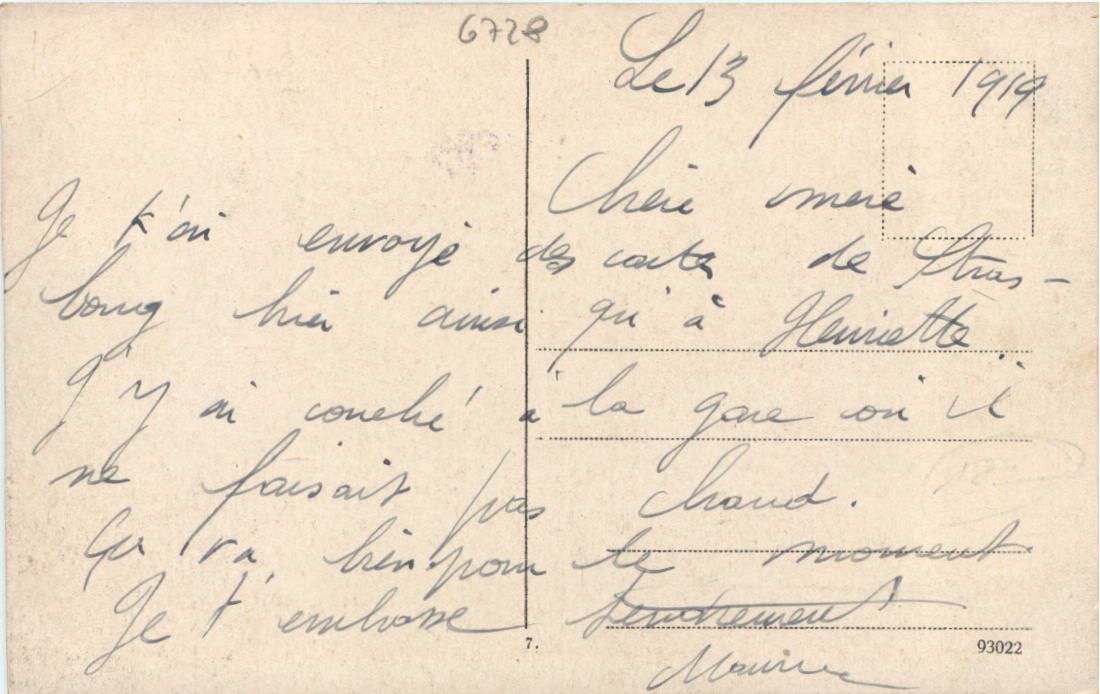 6728
Le 13 février 1919
Chère mère
Je t'ai envoyé des cartes de Stras-
bourg hier ainsi qu'à Henriette
J'y ai couché à la gare où il
ne faisait pas chaud.
Ça va bien pour le moment
Je t'embrasse tendrement
Maurice
7.
93022